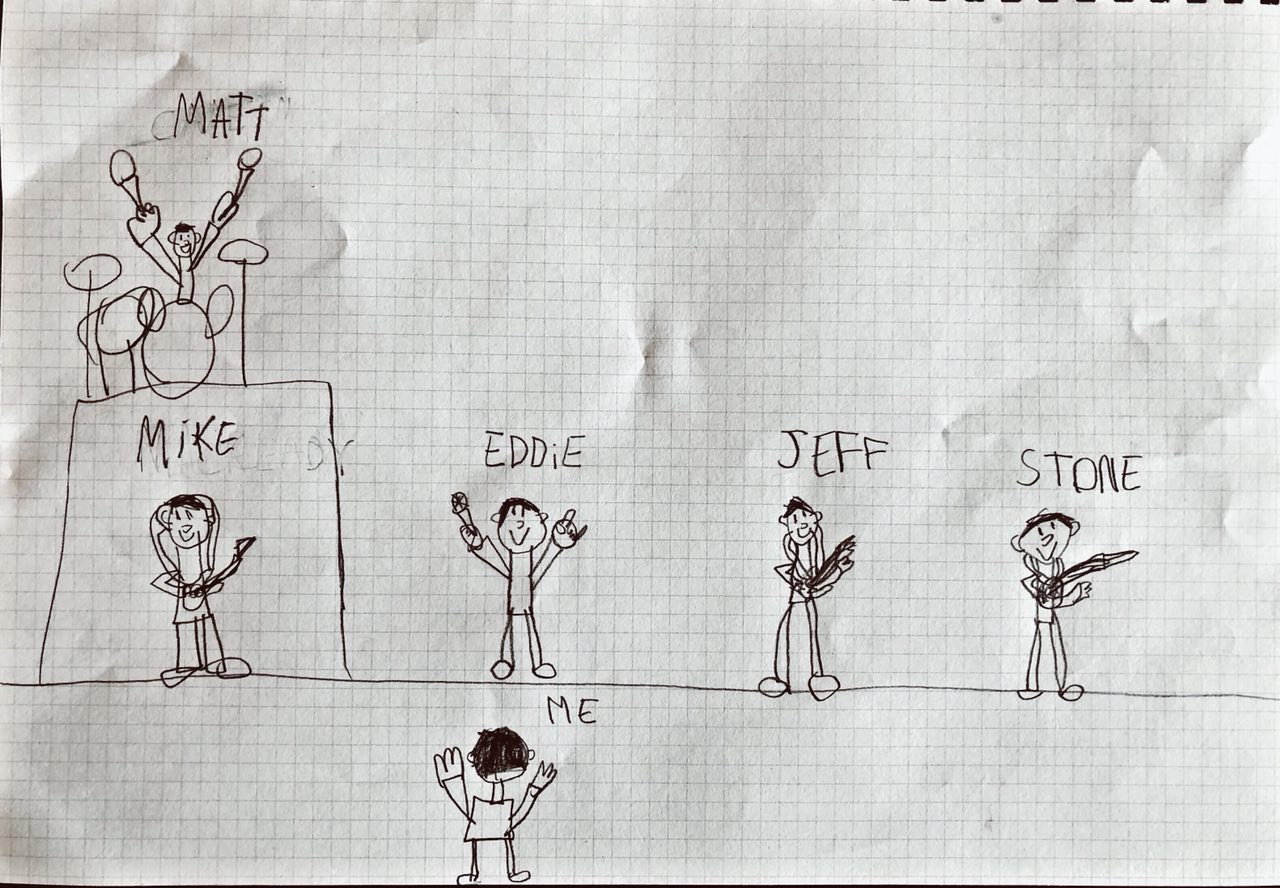 MATT
MiKE
EDDiE
JEFF
STONE
ME